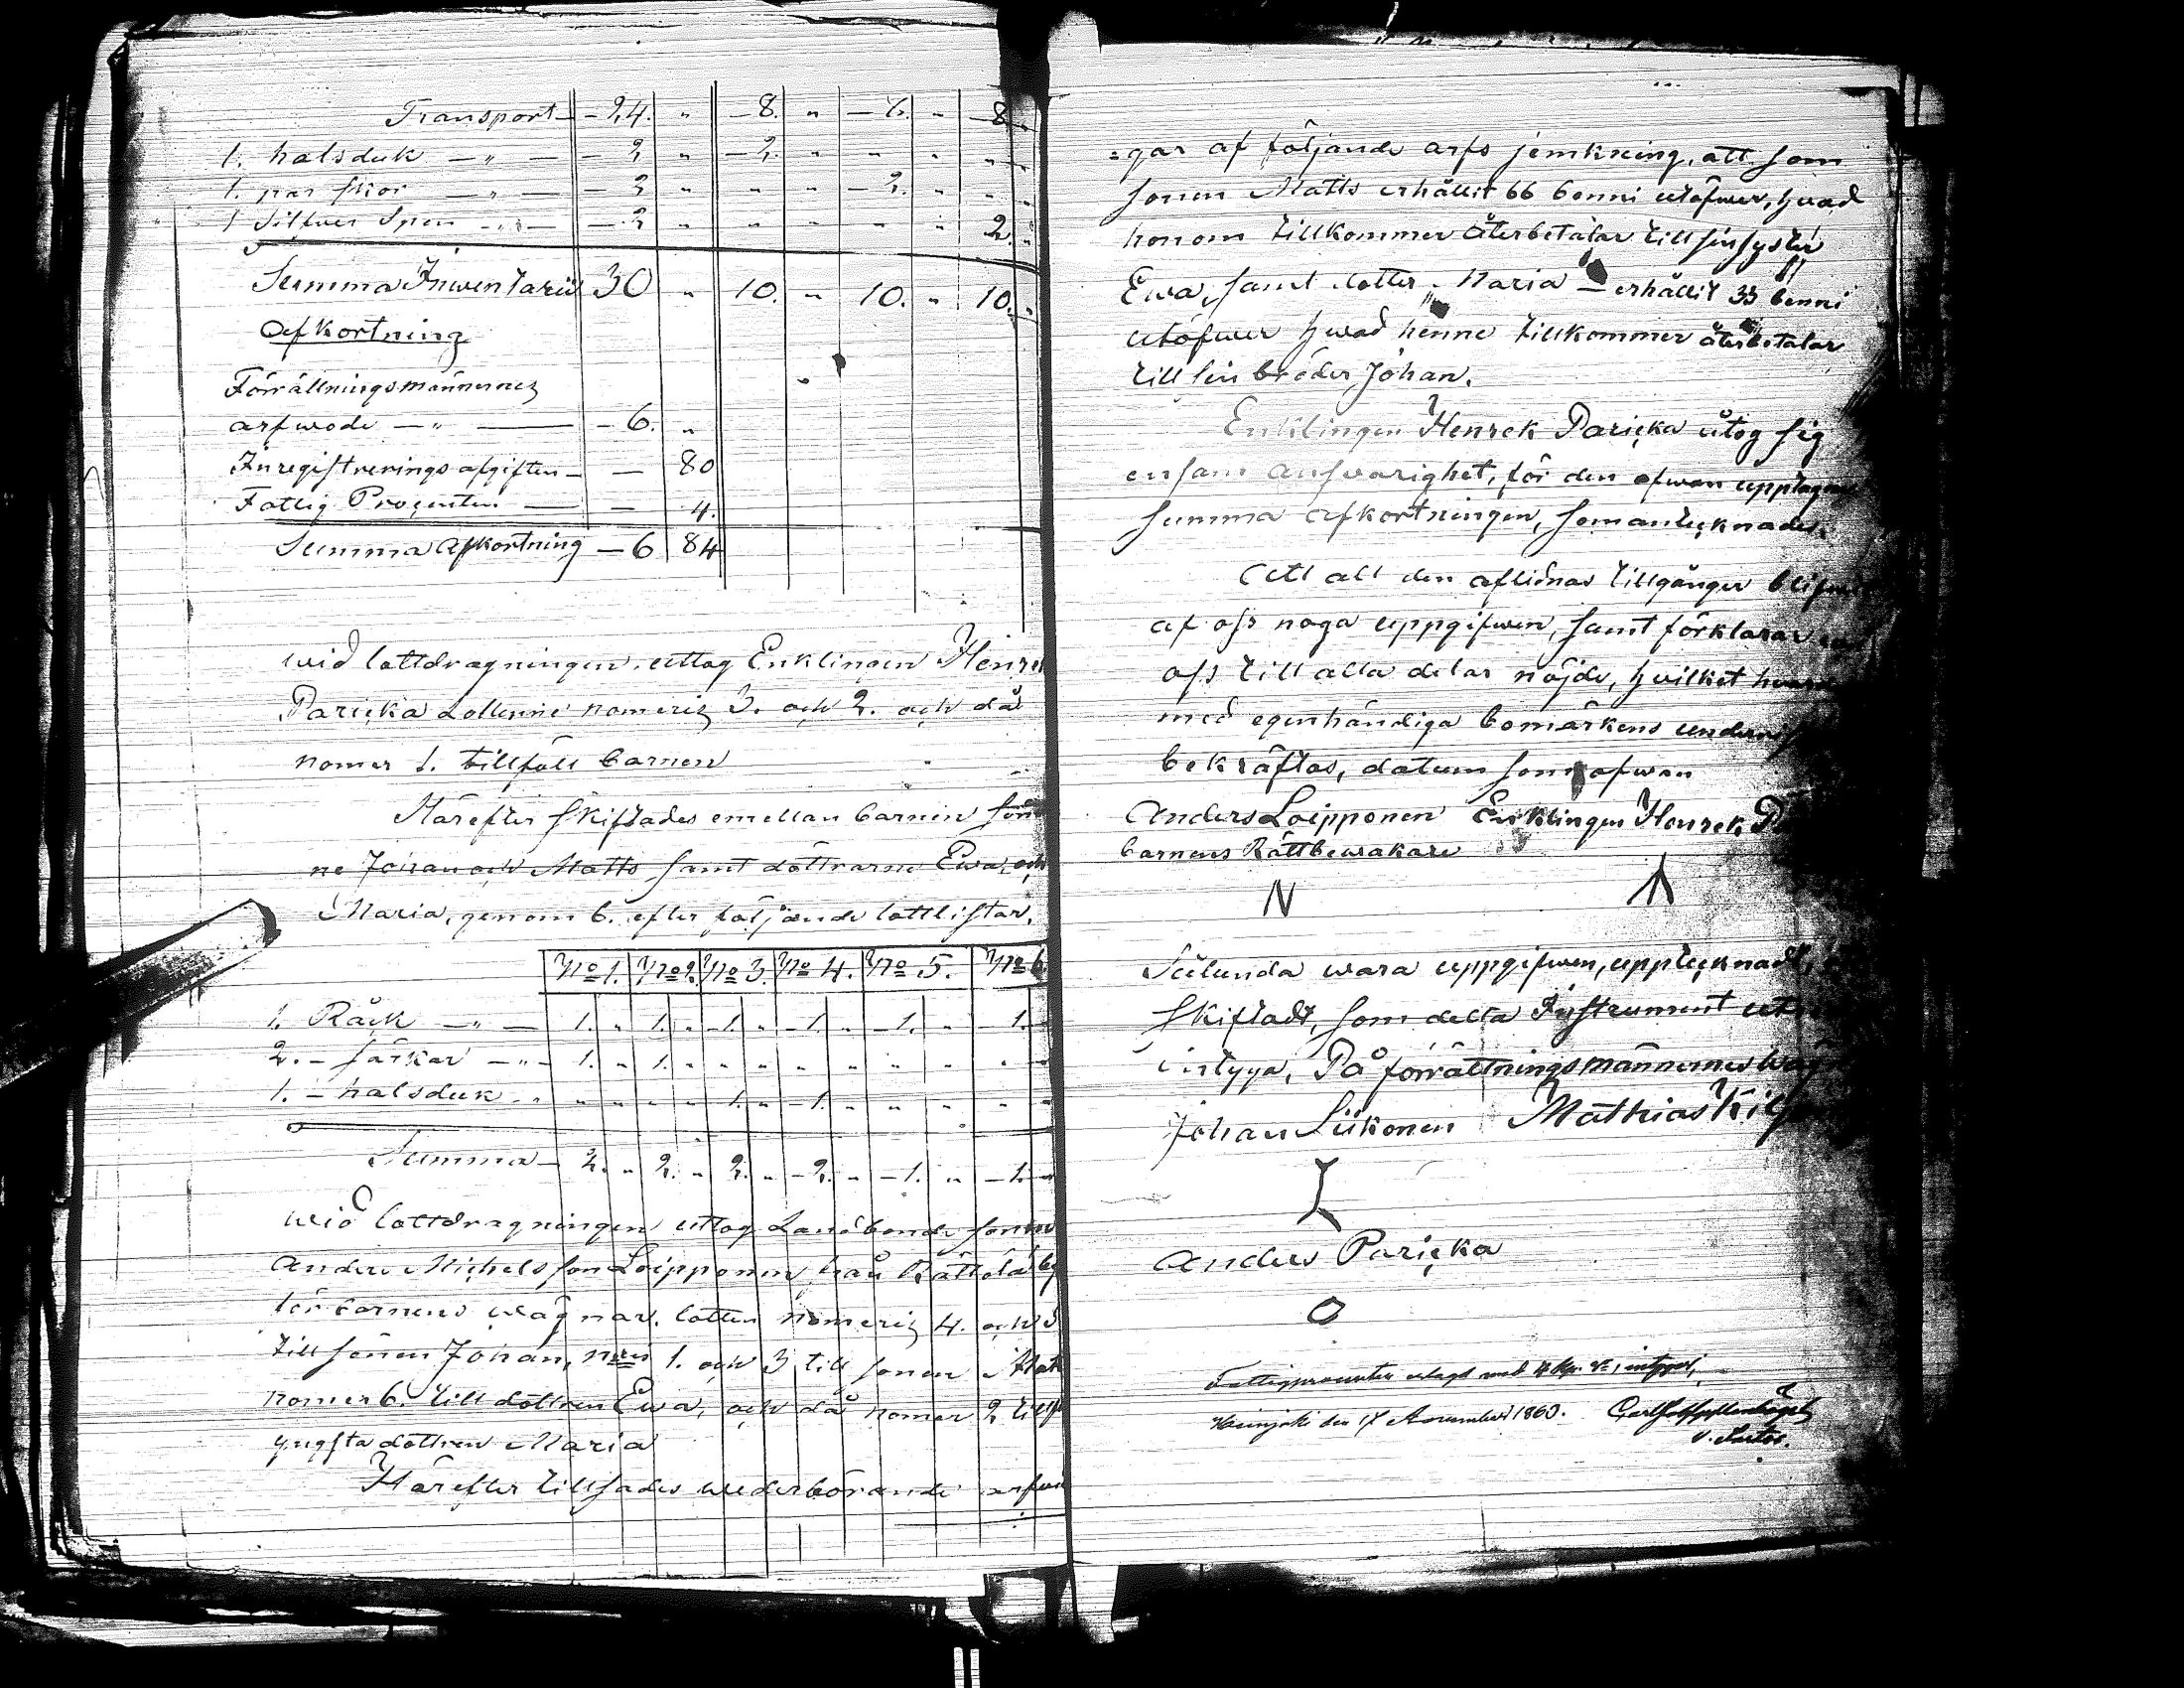 Transport — 24. " — 8. " — 6. " — 8 "
1. halsduk — " — — 2 " — 2. " — " — "
1. par skor — " — — 2 " " " — 2. " " "
1 Silfver Spen — " — — 2 " " " " " 2. "
Summa Inwentarii 30 " 10. " 10. " 10. "
Afkortning
Förrättningsmännernes
arfwode — " — — 6. "
Inregistrerings afgiften — — 80
Fattig Procenten — — 4.
Summa Afkortning — 6 84
wid lottdragningen uttog Enklingen Henrek
Paricka Lotterne nomeris 3. och 2. och då
nomer 1. tillföll barnen
Härefter skiftades emellan barnen söner
ne Johan och Matts samt döttrarne Ewa och
Maria, genom 6. efter följande lottlistar.
No 1. No 2. No 3. No 4. No 5. No 6.
1. Råck — " — 1. " 1. " — 1. " — 1. " — 1. " — 1. —
2. — särkar — " — 1. " 1. " " " " " " " " "
1. — halsduk - " " " " " 1. " — 1. " " " " "
Summa — 2. " 2. " 2. " — 2. " — 1. " — 1. —
wid lottdragningen uttog Landbonde sonen
Anders Michelsson Loipponen från Rättölä by
för barnens wägnar. lotten nomeris 4. och 5
till sonen Johan, 1. och 3 till sonen Matts
nomer 6. till dottren Ewa, och då nomer 2 tillföll
yngsta dottren Maria
Härefter tillsades wederbörande arfwin
=gar af följande arfs jemkning, att som
sonen Matts erhållit 66 benni utöfwer, hwad
honom tillkommer återbetalar till sin syster
Ewa, samt dotter Maria — erhållit 33 benni
utöfwer hwad henne tillkommer återbetalar
till sin broder Johan.
Enklingen Henrek Paricka åtog sig
ensam answarighet, för den ofwan upptagne
summa afkortningen, som antecknades.
Att all den aflidnas tillgångar blifwit
af oss noga uppgifwen, samt förklarar
oss till alla delar nöjde, hwilket
med egenhändiga bomärkens
bekräftas, datum som ofwan
Anders Loipponen Enklingen Henrek
barnens Rättbewakare
N
Sålunda wara uppgifwen, upptecknadt,
skiftadt, som detta Instrument
intyga, På förrättningsmännernes
Johan Liikonen Mathias
Anders Paricka
O
Fattigprocenten erlagd med 4 intygas,
den 17 November 1860.